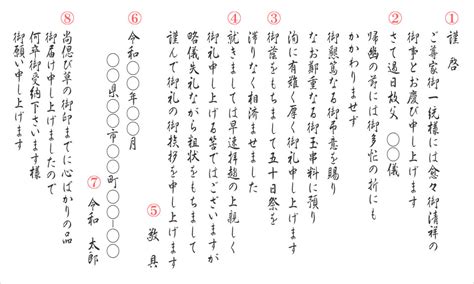 ①
謹啓
ご尊家御一統様には愈々御清祥の
御事とお慶び申し上げます
②
さて過日故父 〇〇儀
帰幽の前には御多忙の折にも
かかわりませず
御懇篤なる御弔意を賜り
なお鄭重なる御玉串料に預り
洵に有難く厚く御礼申し上げます
③
御蔭をもちまして五十日祭を
滞りなく相済ませました
④
就きましては早速拝趨の上親しく
御礼申し上げる筈ではございますが
略儀失礼ながら粗状をもちまして
謹んで御礼の御挨拶を申し上げます
⑤
敬具
⑥
令和〇〇年〇〇月
〇〇県〇〇市〇〇町〇〇ー〇〇
⑦
令和 太郎
⑧
尚偲び草の御印までに心ばかりの品
御届け申し上げましたので
何卒御受納下さいます様
御願い申し上げます